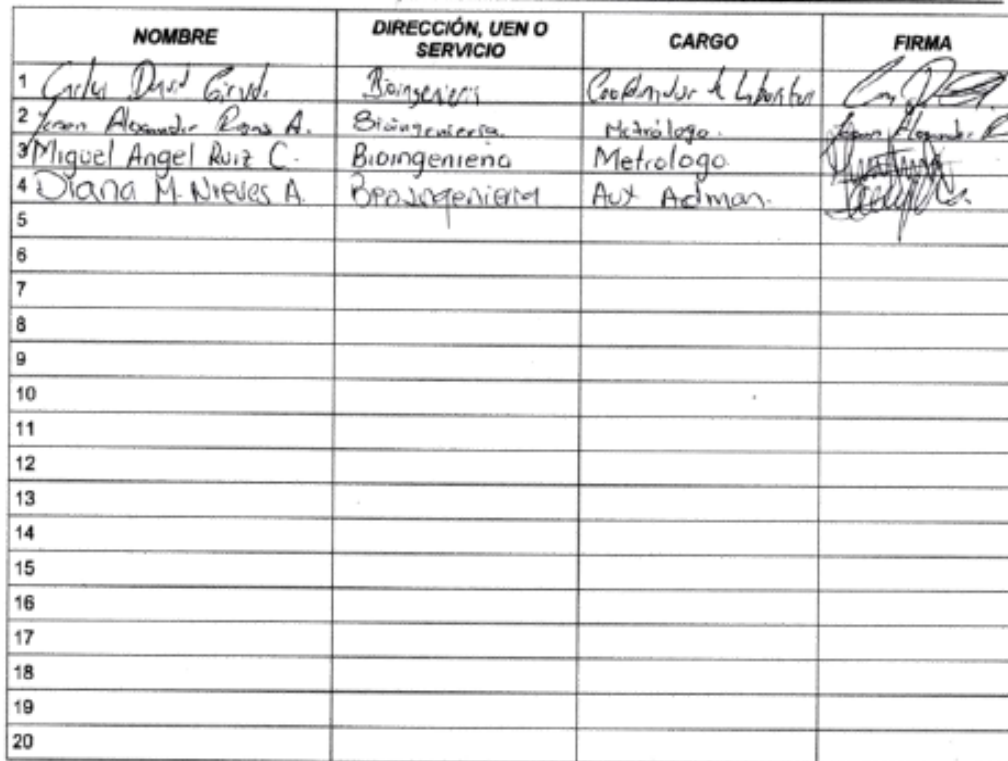 NOMBRE DIRECCIÓN, UEN O SERVICIO CARGO FIRMA
1 Carlos David Bioingenieria Coordinador de Laboratorio
2 Alexander Rojas A. Bioingenieria. Metrólogo. Alexander R
3 Miguel Angel Ruiz C. Bioingenieria Metrologo
4 Diana M. Nieves A. Aux Admon.
5
6
7
8
9
10
11
12
13
14
15
16
17
18
19
20